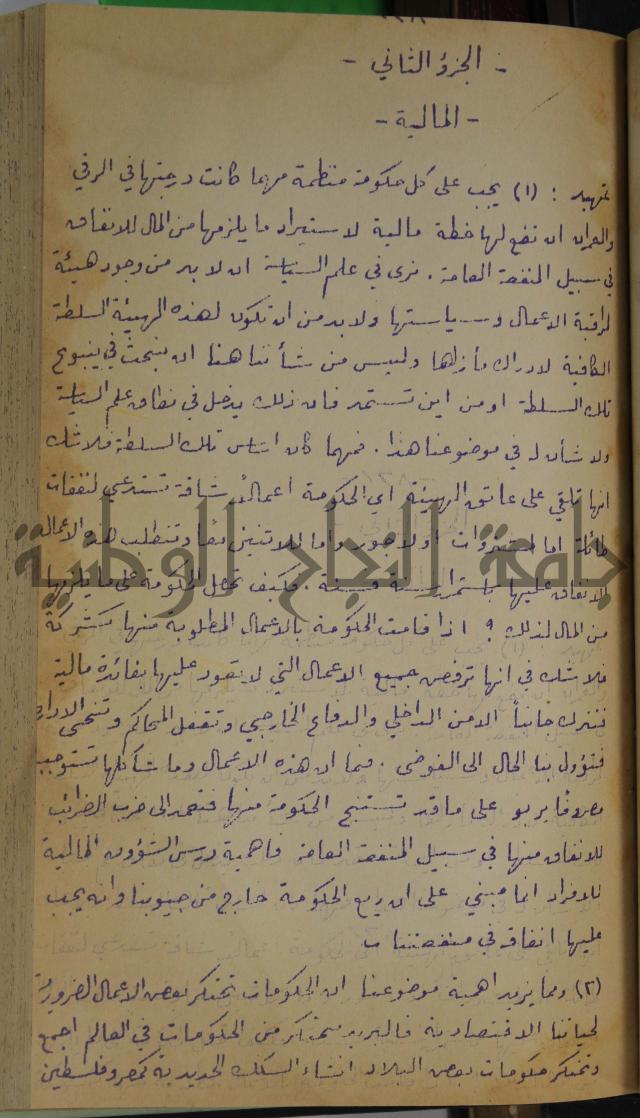 - الجزؤ الثاني -
- المالية -
تمهيد : (١) يجب على كل حكومة منظمة مهما كانت درجتها في الرقي
والعمران ان تضع لها خطة مالية لاستيراد ما يلزمها من المال للانفاق
في سبيل المنفعة العامة . نرى في علم السياسة ان لا بد من وجود هيئة
لمراقبة الاعمال وسياستها ولا بد من ان تكون لهذه الهيئة السلطة
الكافية لادراك مأزلها وليس من شأننا هنا ان نبحث في ينبوع
تلك السلطة او من اين تستمد فان ذلك يدخل في نطاق علم السياسة
ولا شأن له في موضوعنا هذا . فمهما كان اساس تلك السلطة فلا شك
انها تلقي على عاتق الهيئة اي الحكومة اعمالاً شاقة تستدعي لنفقات
طائلة اما لمشتروات او لاجور واما للاثنين معاً وتتطلب هذه الاعمال
للانفاق عليها باستمرار سنة فسنة . فكيف تحصل الحكومة على ما يلزمها
من المال لذلك ؟ اذا قامت الحكومة بالاعمال المطلوبة منها كشركة
فلا شك في انها ترفض جميع الاعمال التي لا تعود عليها بفائدة مالية
فتترك جانباً الامن الداخلي والدفاع الخارجي وتقفل المحاكم وتنحى الادارة
فتؤول بنا الحال الى الفوضى . فبما ان هذه الاعمال وما شاكلها تستوجب
مصروفا يربو على ما قد تستنتج الحكومة منها فتعمد الى ضرب الضرائب
للانفاق منها في سبيل المنفعة العامة فاهمية درس الشؤون المالية
للافراد انما مبني على ان ريع الحكومة خارج من جيوبنا وانه يجب
عليها انفاقه في منفعتنا
(٢) ومما يزيد اهمية موضوعنا ان الحكومات تحتكر بعض الاعمال الضرورية
لحياتنا الاقتصادية فالبريد محتكر من الحكومات في العالم اجمع
وتحتكر حكومات بعض البلاد انشاء السكك الحديدية كمصر وفلسطين
جامعة النجاح الوطنية